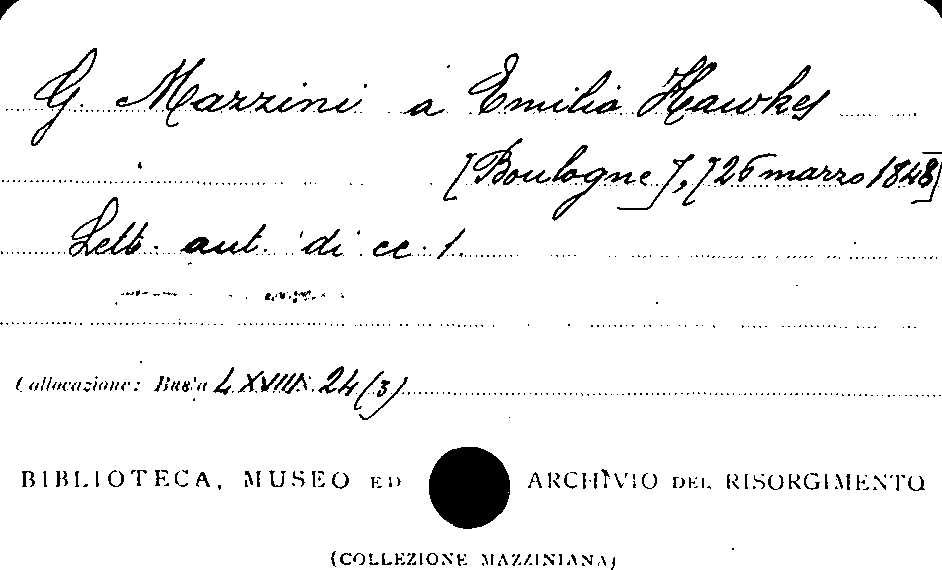 G. Mazzini a Emilia Hawkes
[Boulogne], [26 marzo 1848]
Lett. aut. di cc. 1.
Collocazione: Busta LXVIII N. 24 (3)
BIBLIOTECA, MUSEO ED ARCHIVIO DEL RISORGIMENTO
(COLLEZIONE MAZZINIANA)